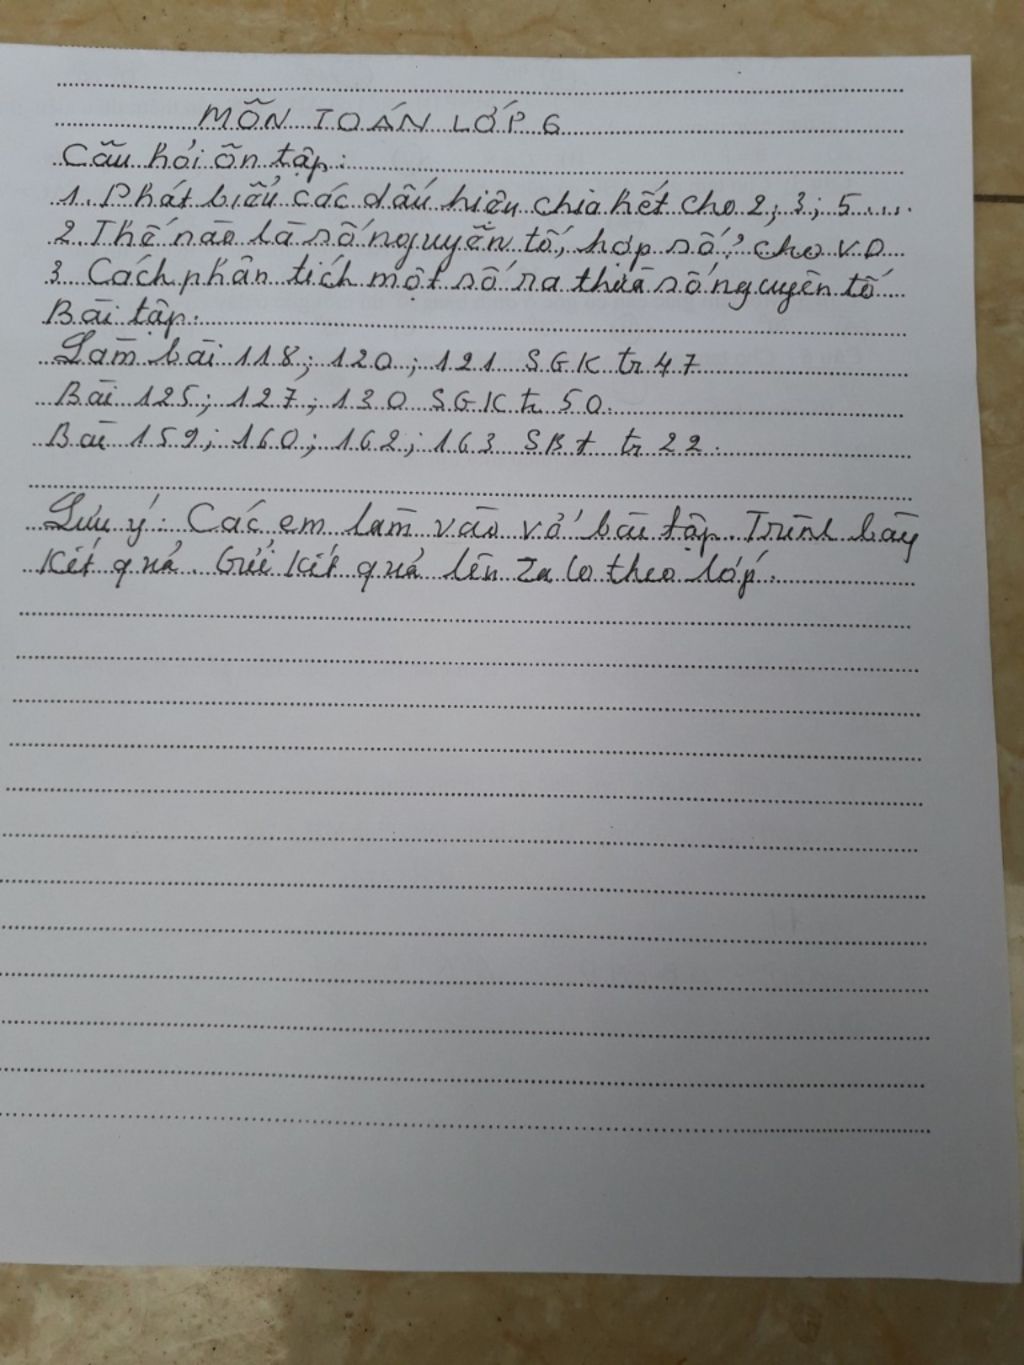 MÔN TOÁN LỚP 6
Câu hỏi ôn tập:
1. Phát biểu các dấu hiệu chia hết cho 2; 3; 5....
2. Thế nào là số nguyên tố, hợp số? cho VD
3. Cách phân tích một số ra thừa số nguyên tố
Bài tập.
Làm bài 118; 120; 121 SGK tr 47
Bài 125; 127; 130 SGK tr 50.
Bài 159; 160; 162; 163 SBT tr 22.
Lưu ý: Các em làm vào vở bài tập. Trình bày
kết quả. Gửi kết quả lên Zalo theo lớp.